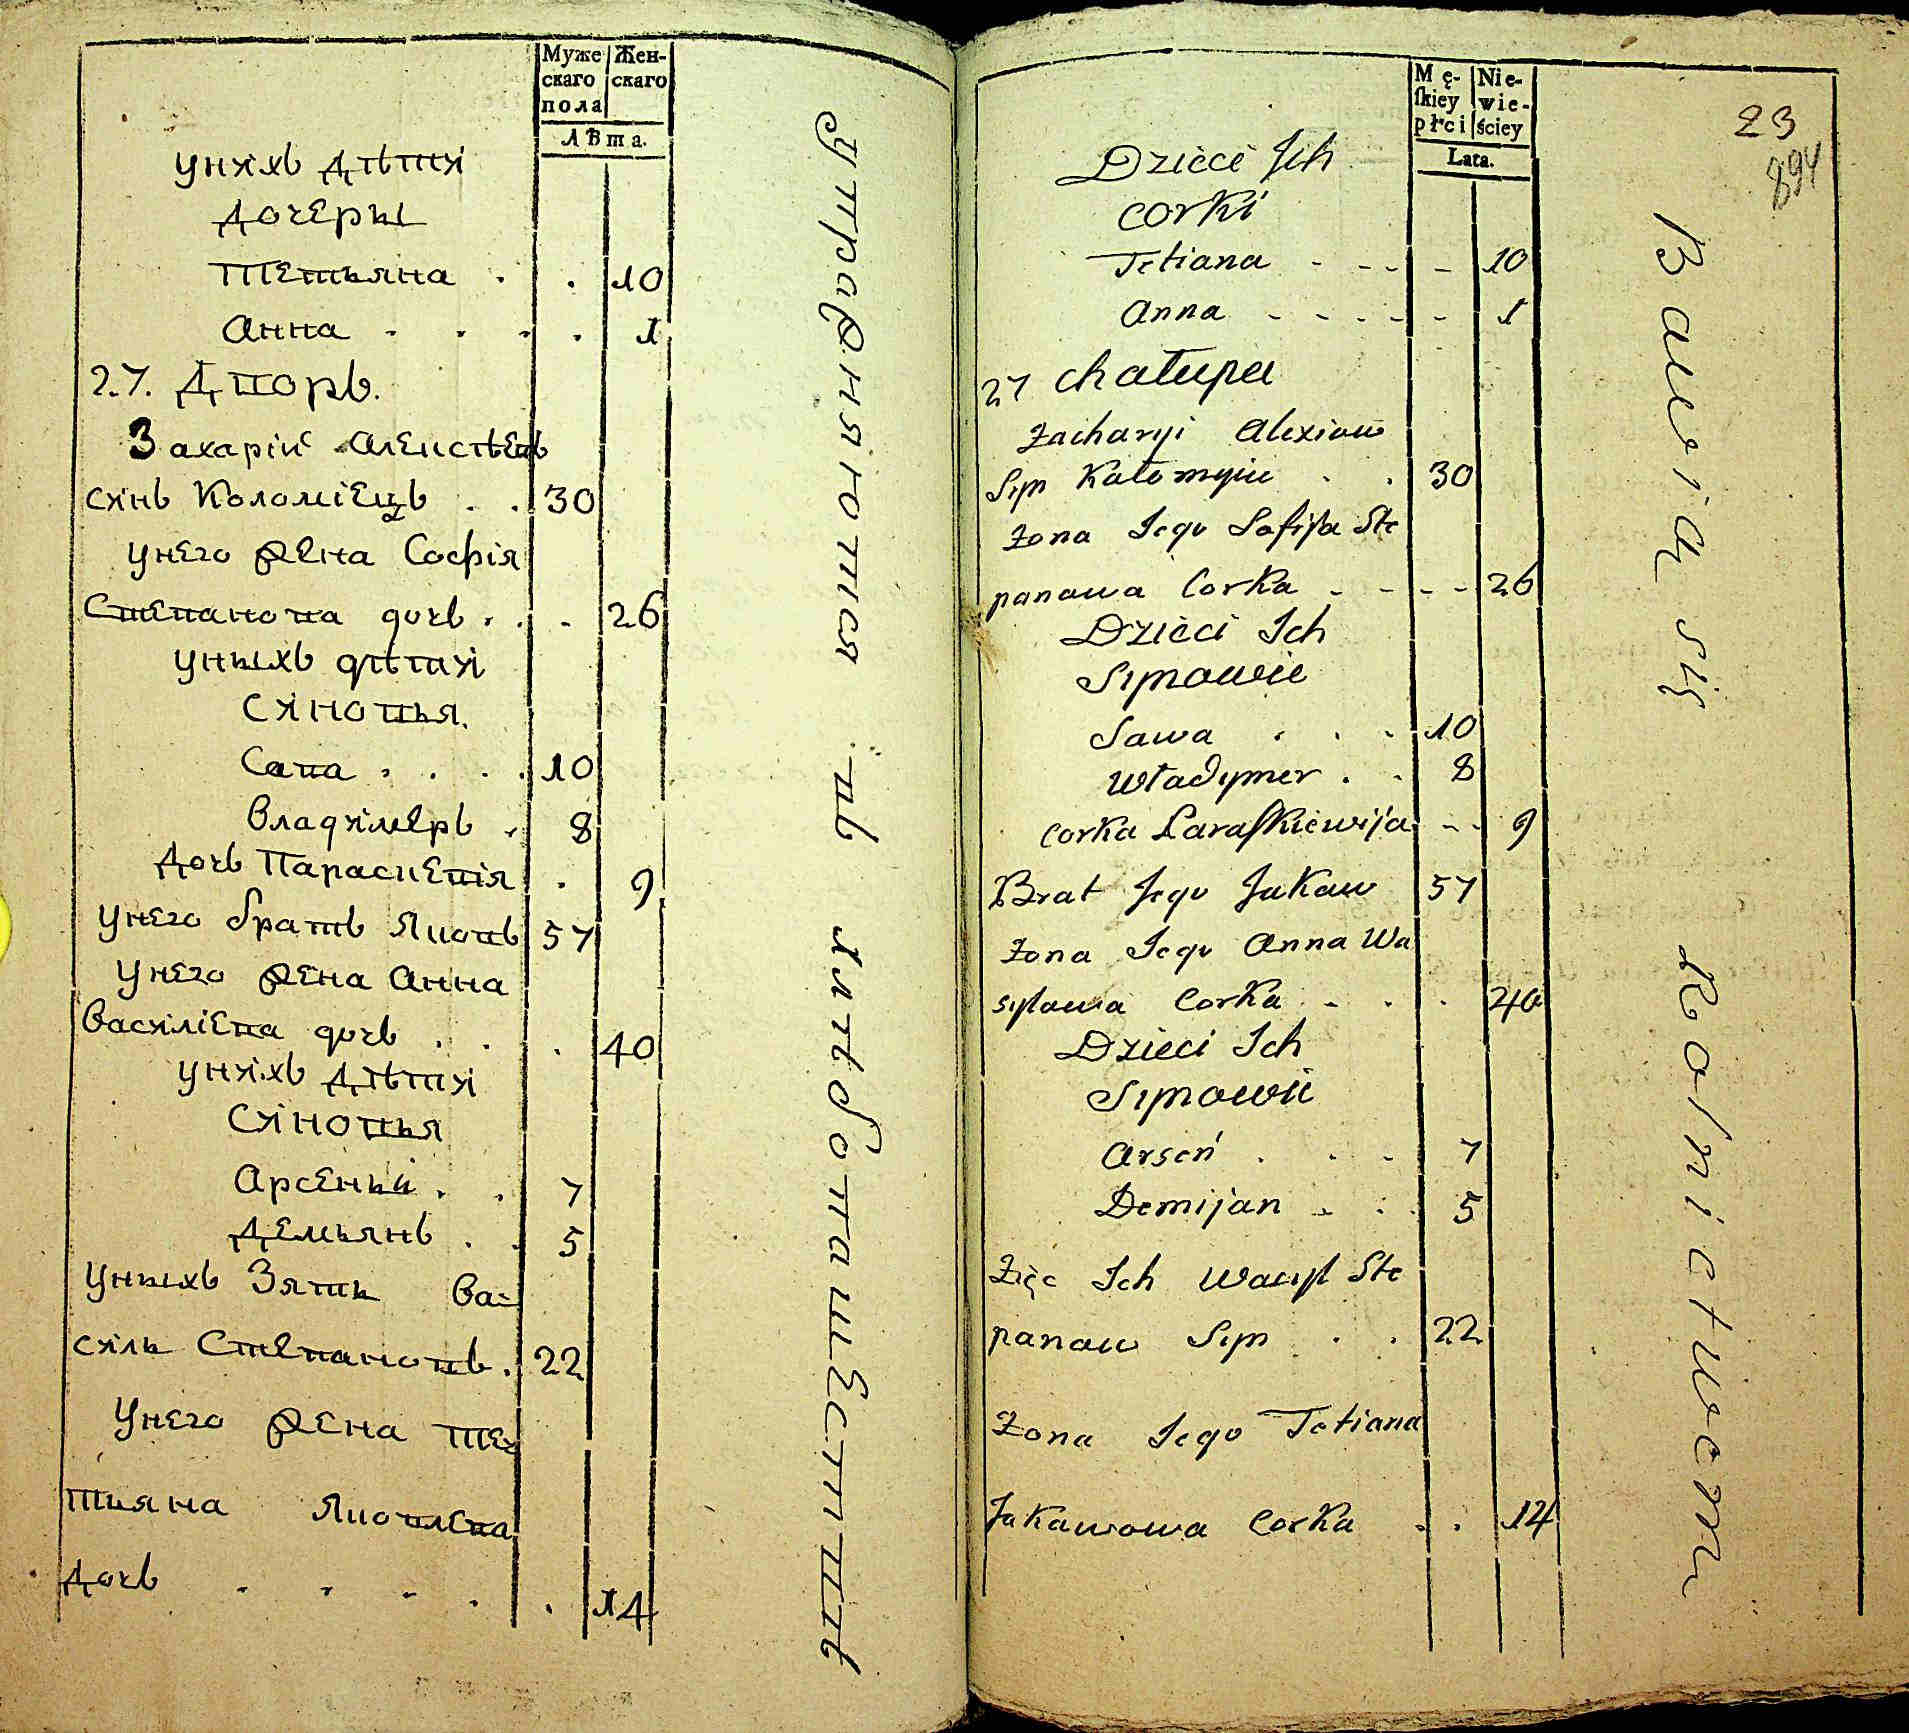 Муже
скаго
пола
Жен-
скаго
Лѣта.
унихъ дѣти
дочеры
Тетьяна . . 10
Анна . . . . 1
27. Дворъ.
Захарій Алексѣевъ
синъ Коломіецъ . . 30
унего жена Софія
Степанова дочь . . . 26
уныхъ дѣти
Синовья.
Сава . . . . 10
Владимеръ . 8
Дочь Параскевія . 9
унего братъ Яковъ 57
унего жена Анна
Василіева дочь . . . 40
унихъ дѣти
Синовья
Арсеный . . 7
Демьянъ . . 5
уныхъ Зять Ва=
силь Степановъ. 22
унего жена Те=
тьяна Яковлева
дочь . . . . . 14
упражняются въ хлѣбопашествѣ
Mę-
ſkiey
płci
Nie-
wie-
ściey
Lata.
23
894
Dzieci Ich
corki
Tetiana - - - - 10
Anna - - - - - 1
27 chałupa
Zacharyi Alexiow
Syn Kołomyiec . . 30
Zona Iego Sofija Ste
panowa Corka - - - - 26
Dzieci Ich
Synowie
Sawa . . . 10
Władymer . . 8
corka Paraſkiewija - - 9
Brat Jego Jakow 57
Zona Iego Anna Wa
sylowa Corka - . . 40
Dzieci Ich
Synowie
Arseń . . - 7
Demijan - . . 5
Zięc Ich Wasyl Ste
panow Syn . . 22
Zona Iego Tetiana
Jakowowa Corka . . 14
Bawią się Rolnictwem